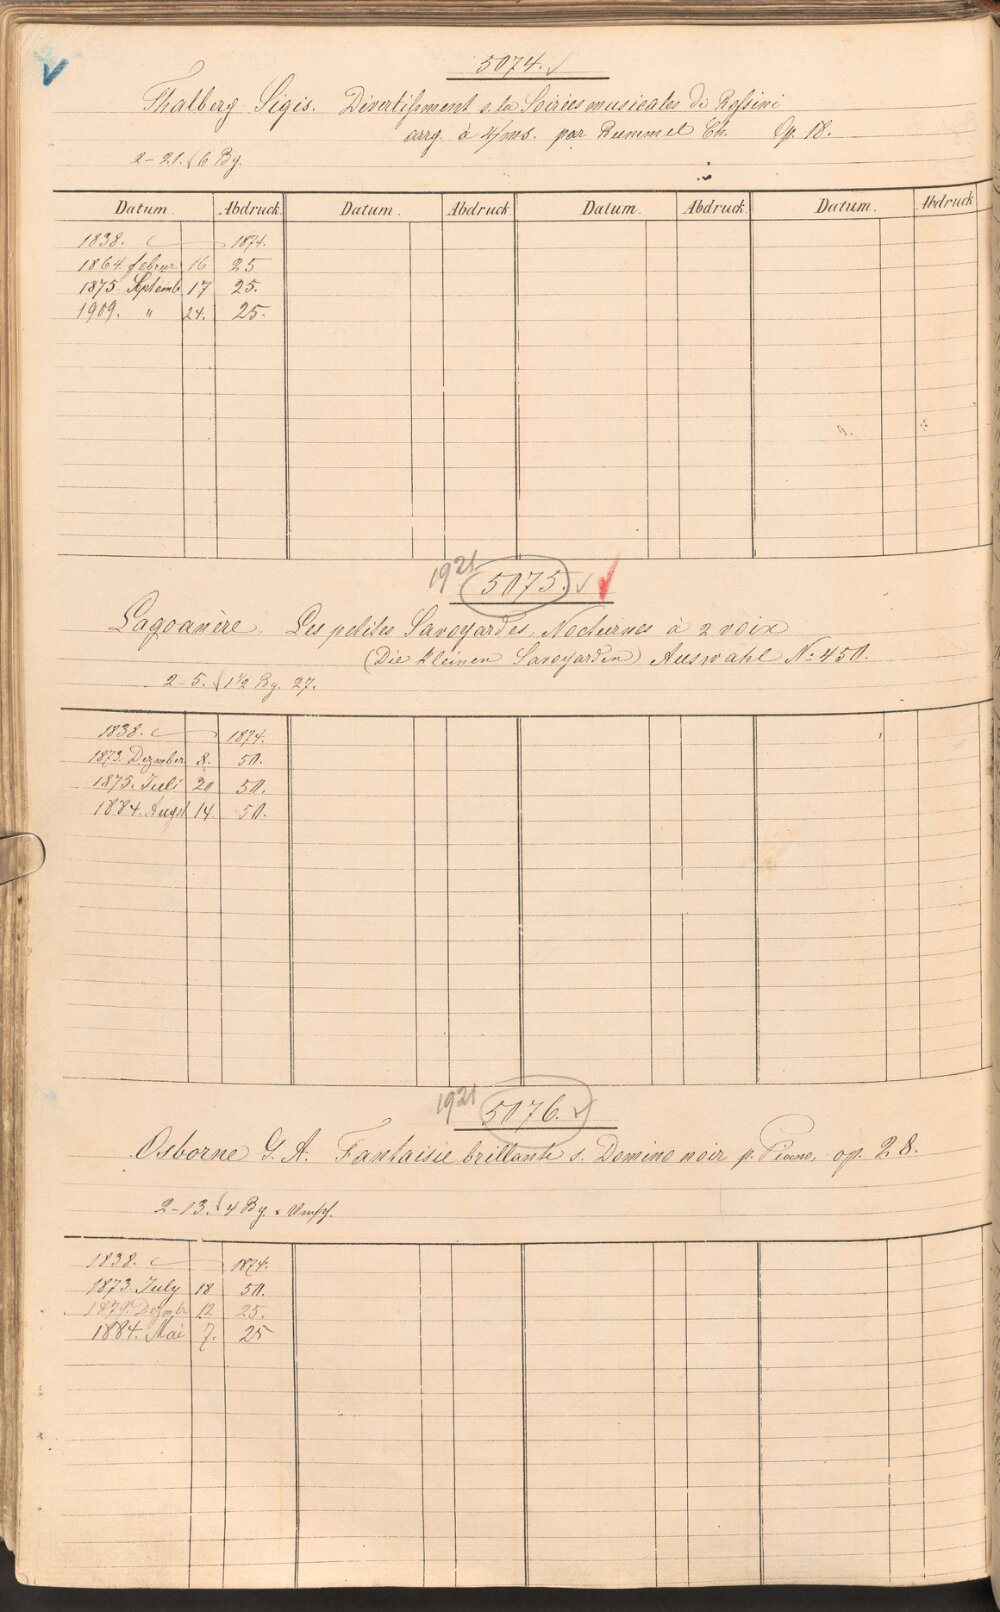 5074. ✓
Thalberg Sigis. Divertissment s. la Soirées musicales de Rossini
arrg. à 4/ms. par Rummel Ch. Op. 18.
2-21. 6 Bg.
Datum. Abdruck Datum. Abdruck Datum. Abdruck Datum. Abdruck
1838. 1874.
1864. februar 16 25
1875 Septemb 17 25.
1909. " 24. 25.
1921 5075. ✓ ✓
Lagoanère. Les petites Savoyardes, Nocturnes à 2 voix
(Die kleinen Savoyarden) Auswahl No 450.
2-5. 1 1/2 Bg. 27.
1838. 1874.
1873. Dezember 8. 50.
1875. Juli 20 50.
1884. Augst 14. 50.
1921 5076. ✓
Osborne G. A. Fantaisie brillante s. Domino noir p. Piano, op. 28.
2-13. 4 Bg.
1838. 1874.
1873. July 18 50.
1879. Dezmbr 12 25.
1884. Mai 7. 25